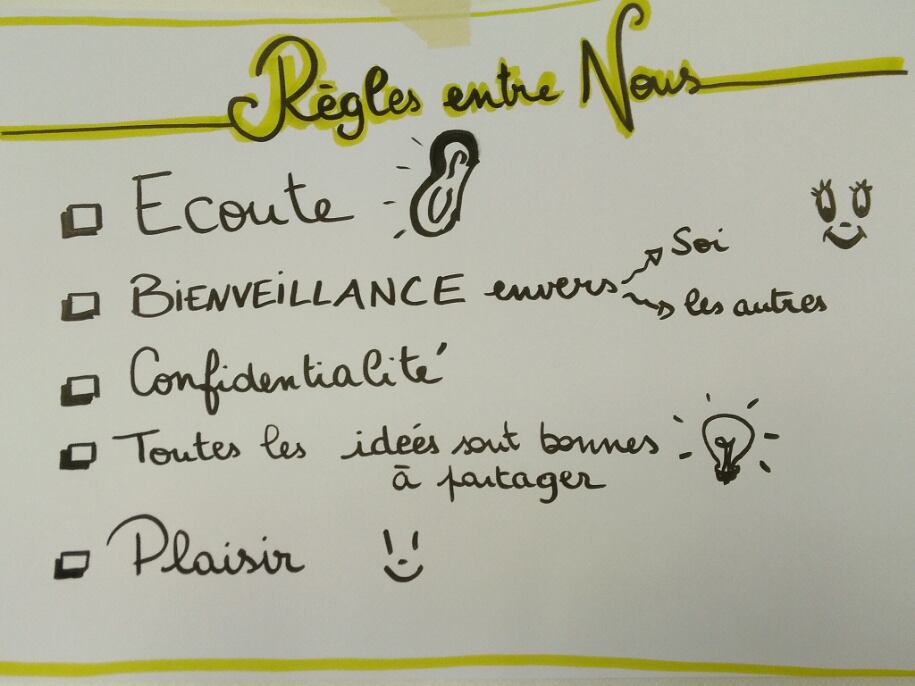 Règles entre Nous
Ecoute
BiENVEiLLANCE envers
Soi
les autres
Confidentialité
Toutes les idées sont bonnes
à partager
Plaisir